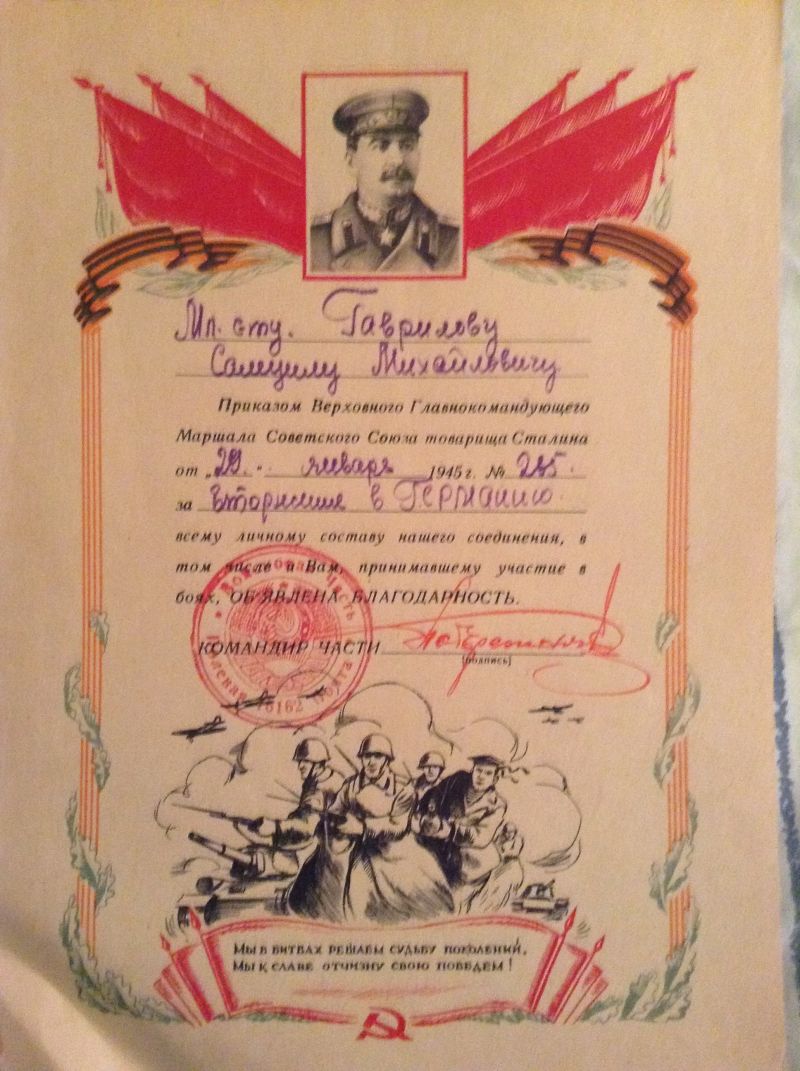 Мл. с-ту. Гаврилову
Михайловичу
Приказом Верховного Главнокомандующего
Маршала Советского Союза товарища Сталина
от „29.“ января 1945 г. №
за вторжение в Германию.
всему личному составу нашего соединения, в
том числе и Вам, принимавшему участие в
боях, ОБ'ЯВЛЕНА БЛАГОДАРНОСТЬ.
КОМАНДИР ЧАСТИ
(подпись)
Войсковая часть
Полевая почта
Мы в битвах решаем судьбу поколений,
Мы к славе отчизну свою поведем!